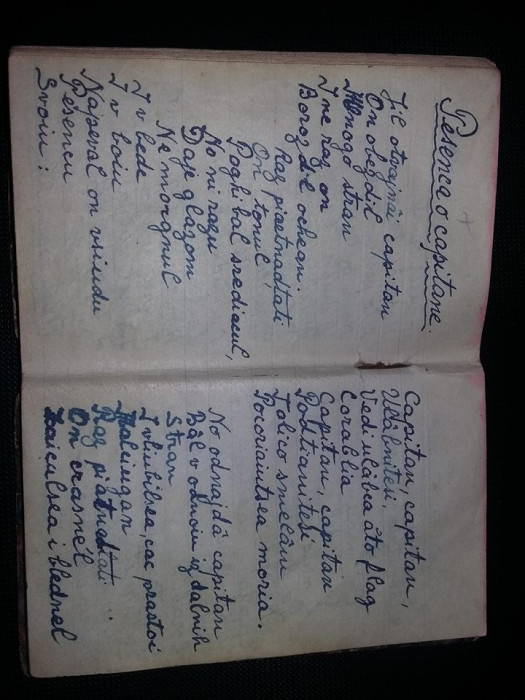 Pesenca o capitane.
Jil otvajnâi capitan
On obezdil
Mnogo stran
I ne raz on
Borozdil ochean.
Raz piatnadtati
On tonul
Poghibal sredi acul,
No ni razu
Daje glazom
Ne morgnul
I v bede
I v boiu
Napeval on vsiudu
Pesencu
Svoiu:
Capitan, capitan,
Ulâbnitesi,
Vedi ulâbca âto flag
Corablia
Capitan, capitan
Podtianitesi
Tolico smelâm
Pocoriaiutsea moria.
No odnajdâ capitan
Bâl v odnoi iz dalnih
Stran
I vliubilsea, cac prastoi
Maliugan
Raz piatnadtati
On crasnel
Zaicalsea i blednel